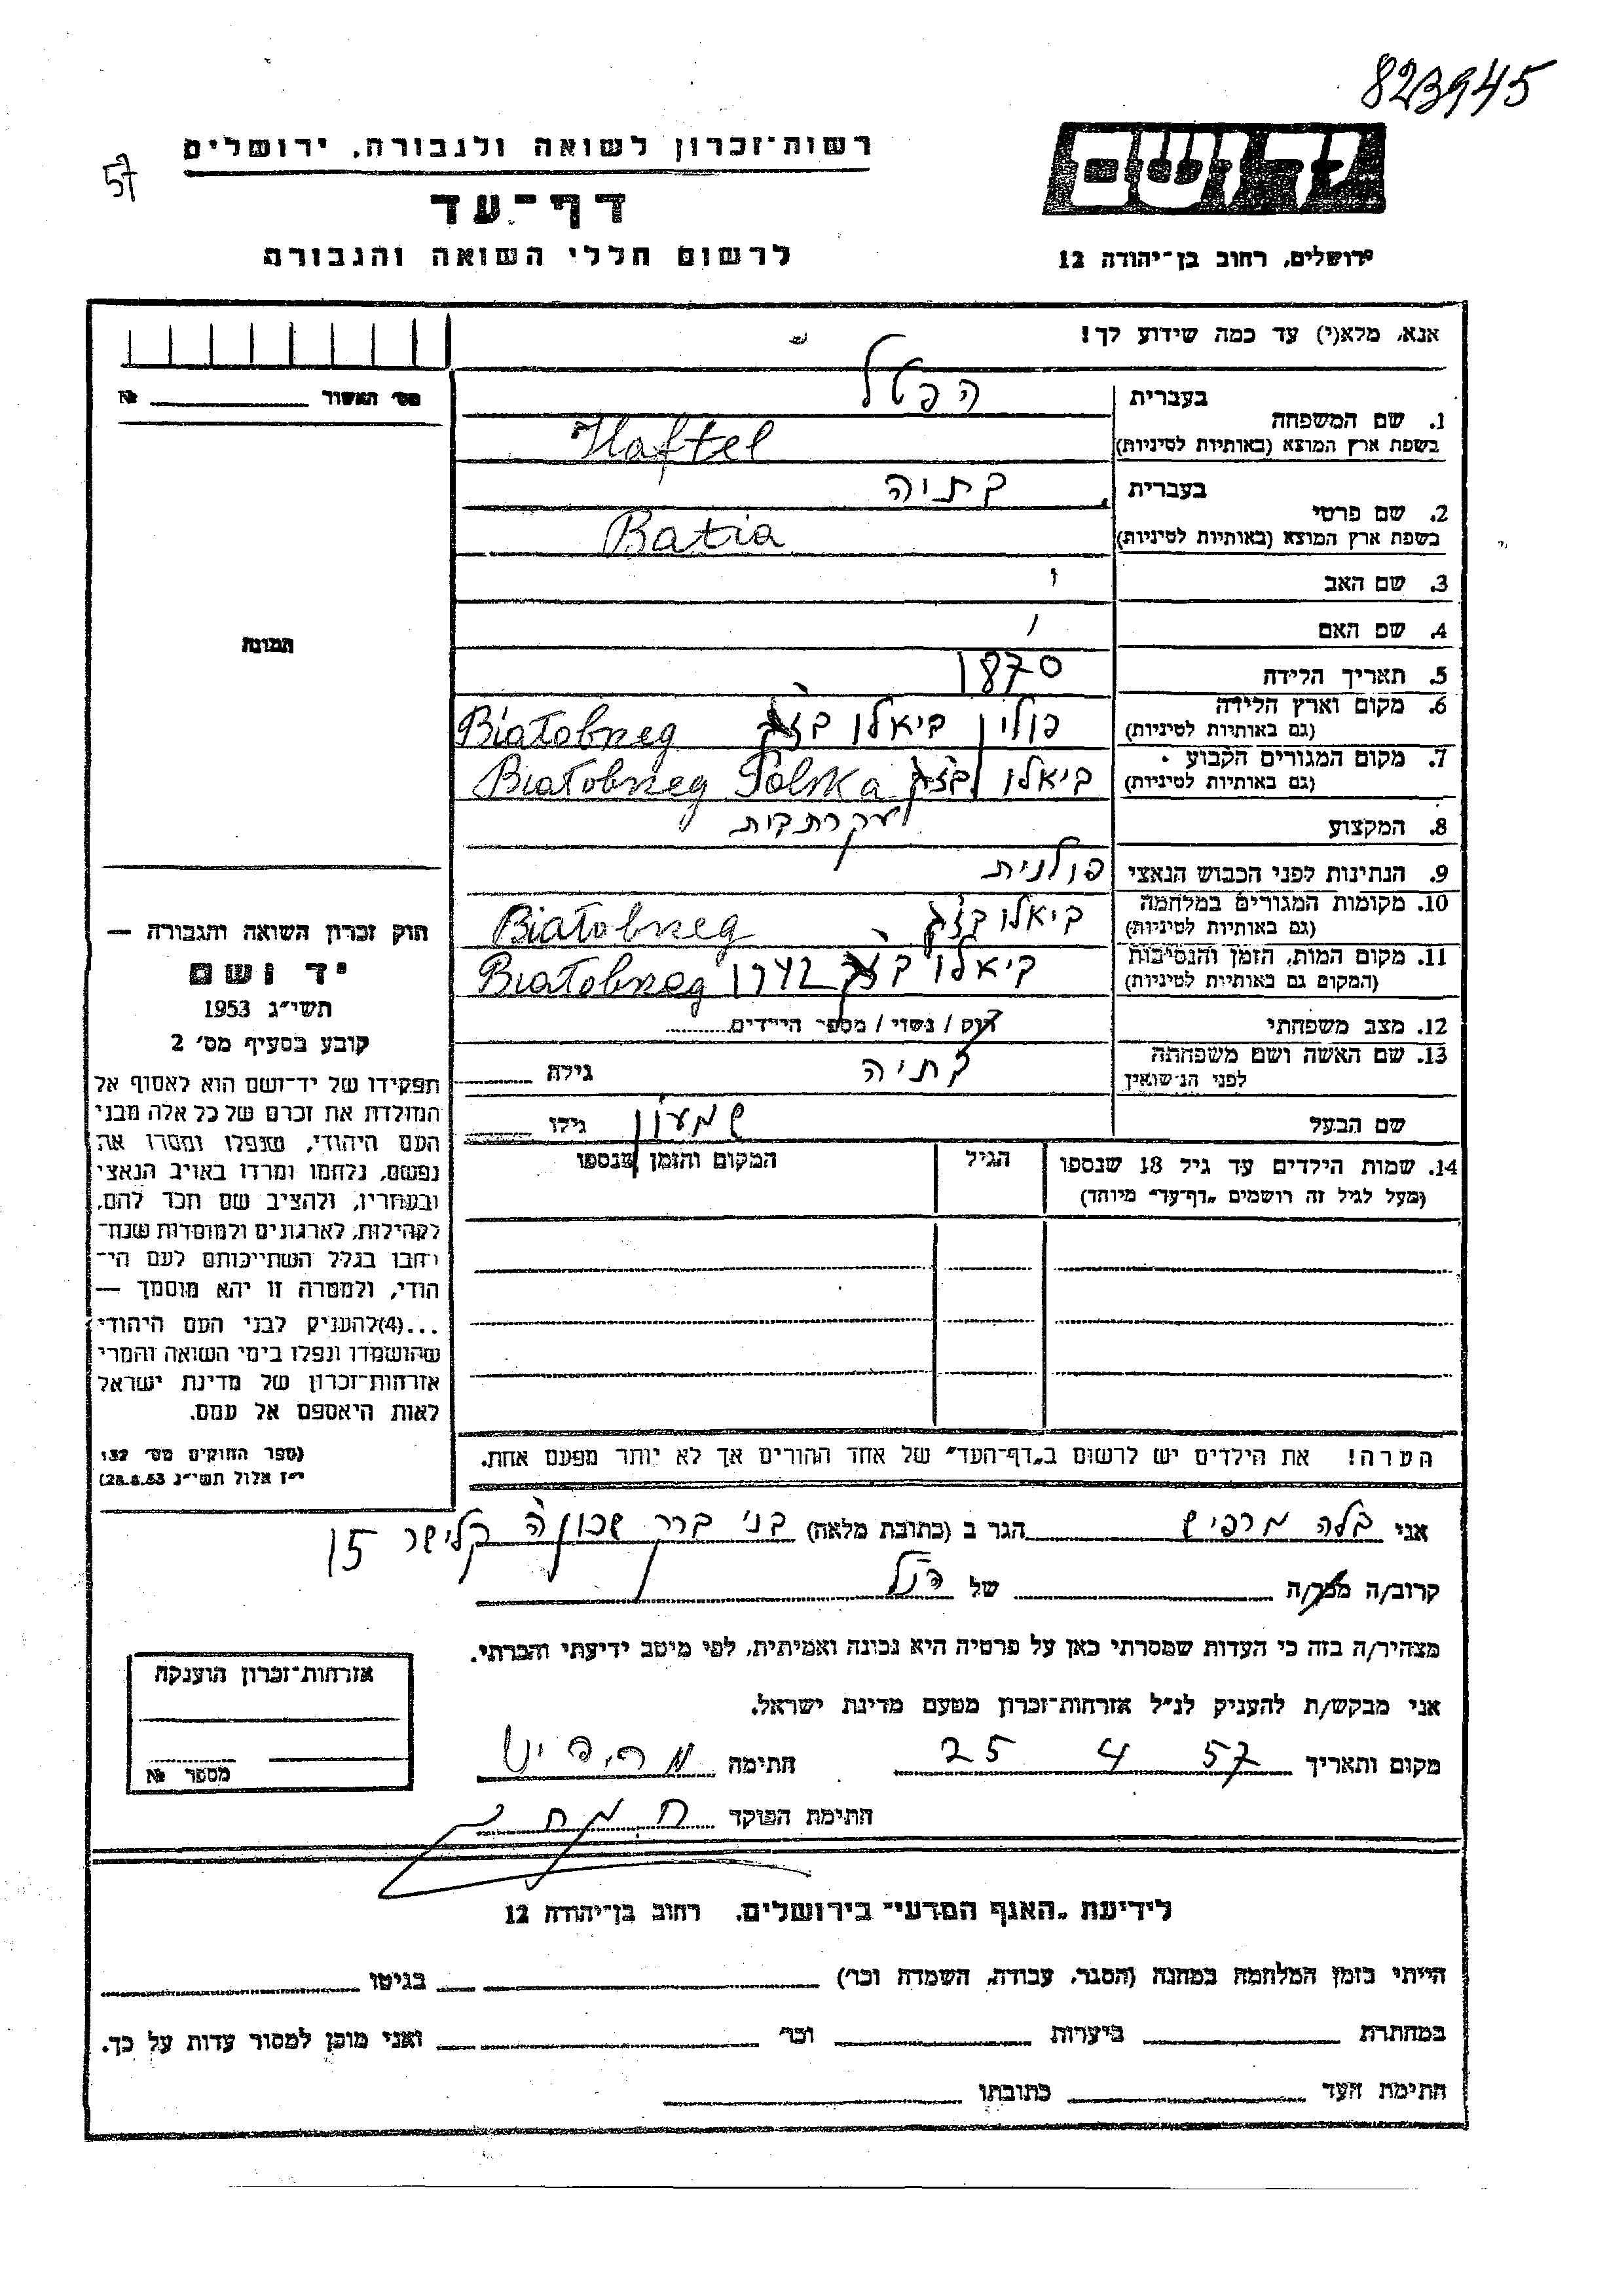 823945
57
רשות־זכרון לשואה ולגבורה, ירושלים
דף־עד
לרשום חללי השואה והגבורה
ירושלים, רחוב בן־יהודה 12
אנא, מלא(י) עד כמה שידוע לך!
מס' האשור №
1. שם המשפחה
בעברית הפטל
בשפת ארץ המוצא (באותיות לטיניות) Haftel
2. שם פרטי
בעברית בתיה
בשפת ארץ המוצא (באותיות לטיניות) Batia
3. שם האב
4. שם האם
תמונה
5. תאריך הלידה 1870
6. מקום וארץ הלידה (גם באותיות לטיניות) פולין ביאלו בזג Białobrzeg
7. מקום המגורים הקבוע (גם באותיות לטיניות) ביאלו בזג Białobrzeg Polska
8. המקצוע עקרת בית
9. הנתינות לפני הכבוש הנאצי פולנית
10. מקומות המגורים במלחמה (גם באותיות לטיניות) ביאלו בזג Białobrzeg
11. מקום המות, הזמן והנסיבות (המקום גם באותיות לטיניות) ביאלו בזג 1942 Białobrzeg
12. מצב משפחתי רוק / נשוי / מספר הילדים
13. שם האשה ושם משפחתה לפני הנישואין בתיה גילה
שם הבעל שמעון גילו
14. שמות הילדים עד גיל 18 שנספו
(מעל לגיל זה רושמים „דף־עד" מיוחד)
הגיל
המקום והזמן שנספו
חוק זכרון השואה והגבורה —
יד ושם
תשי״ג 1953
קובע בסעיף מס' 2
תפקידו של יד־ושם הוא לאסוף אל
המולדת את זכרם של כל אלה מבני
העם היהודי, שנפלו ומסרו את
נפשם, נלחמו ומרדו באויב הנאצי
ובעוזריו, ולהציב שם וזכר להם,
לקהילות, לארגונים ולמוסדות שנח־
רבו בגלל השתייכותם לעם הי־
הודי, ולמטרה זו יהא מוסמך —
...(4)להעניק לבני העם היהודי
שהושמדו ונפלו בימי השואה והמרי
אזרחות־זכרון של מדינת ישראל
לאות היאספם אל עמם.
(ספר החוקים מס' 132
י״ז אלול תשי״ג 28.8.53)
הערה! את הילדים יש לרשום ב„דף־העד" של אחד ההורים אך לא יותר מפעם אחת.
אני בלה מרפיש הגר ב (כתובת מלאה) בני ברק שכונה ק קלישר 15
קרוב/ה מכר/ה של הנ״ל
מצהיר/ה בזה כי העדות שמסרתי כאן על פרטיה היא נכונה ואמיתית, לפי מיטב ידיעתי והכרתי.
אני מבקש/ת להעניק לנ״ל אזרחות־זכרון מטעם מדינת ישראל.
מקום ותאריך 25 4 57 חתימה
חתימת הפוקד
אזרחות־זכרון הוענקה
מספר №
לידיעת „האגף המדעי" בירושלים, רחוב בן־יהודה 12
הייתי בזמן המלחמה במחנה (הסגר, עבודה, השמדה וכו') בגיטו
במחתרת ביערות וכו' ואני מוכן למסור עדות על כך.
חתימת העד כתובתו